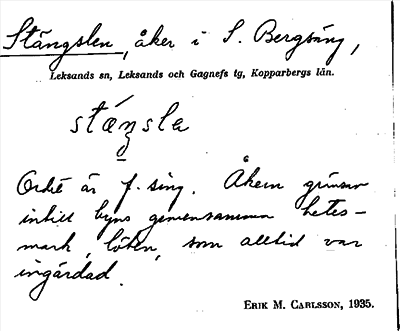 Stängslen, åker i S. Bergsäng,
Leksands sn, Leksands och Gagnefs tg, Kopparbergs län.
stáŋsla
Ordet är f. sing. Åkern gränsar
intill byns gemensamma betes-
mark, löten, som alltid var
ingärdad.
ERIK M. CARLSSON, 1935.